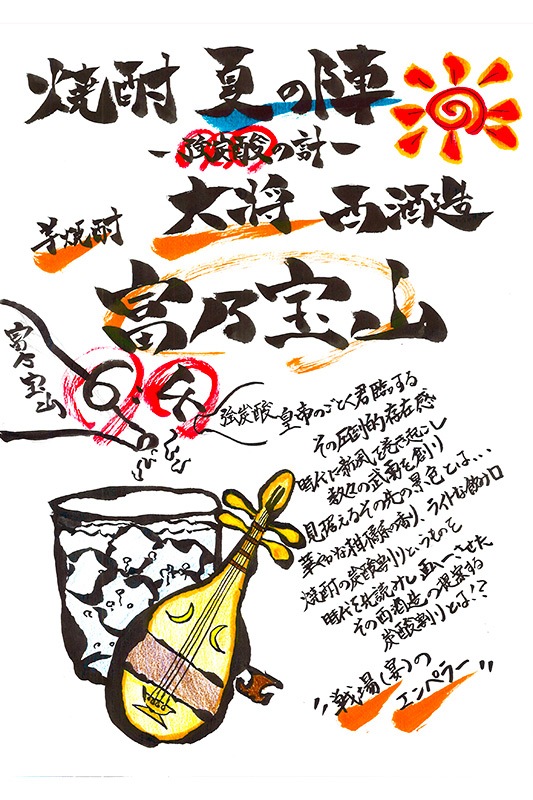 焼酎 夏の陣
-強炭酸の計-
大将 西酒造
芋焼酎
富乃宝山
富乃宝山
6
4
強炭酸
皇帝のごとく君臨する
その圧倒的存在感
時代に新風を巻き起こし
数々の武勇を創り
見据えるその先の景色とは...
華やかな柑橘系の香り、ライトな飲み口
焼酎の炭酸割りというものを
時代を先読みし
その西酒造の提案する
炭酸割りとは!?
"戦場(宴)の
エンペラー"